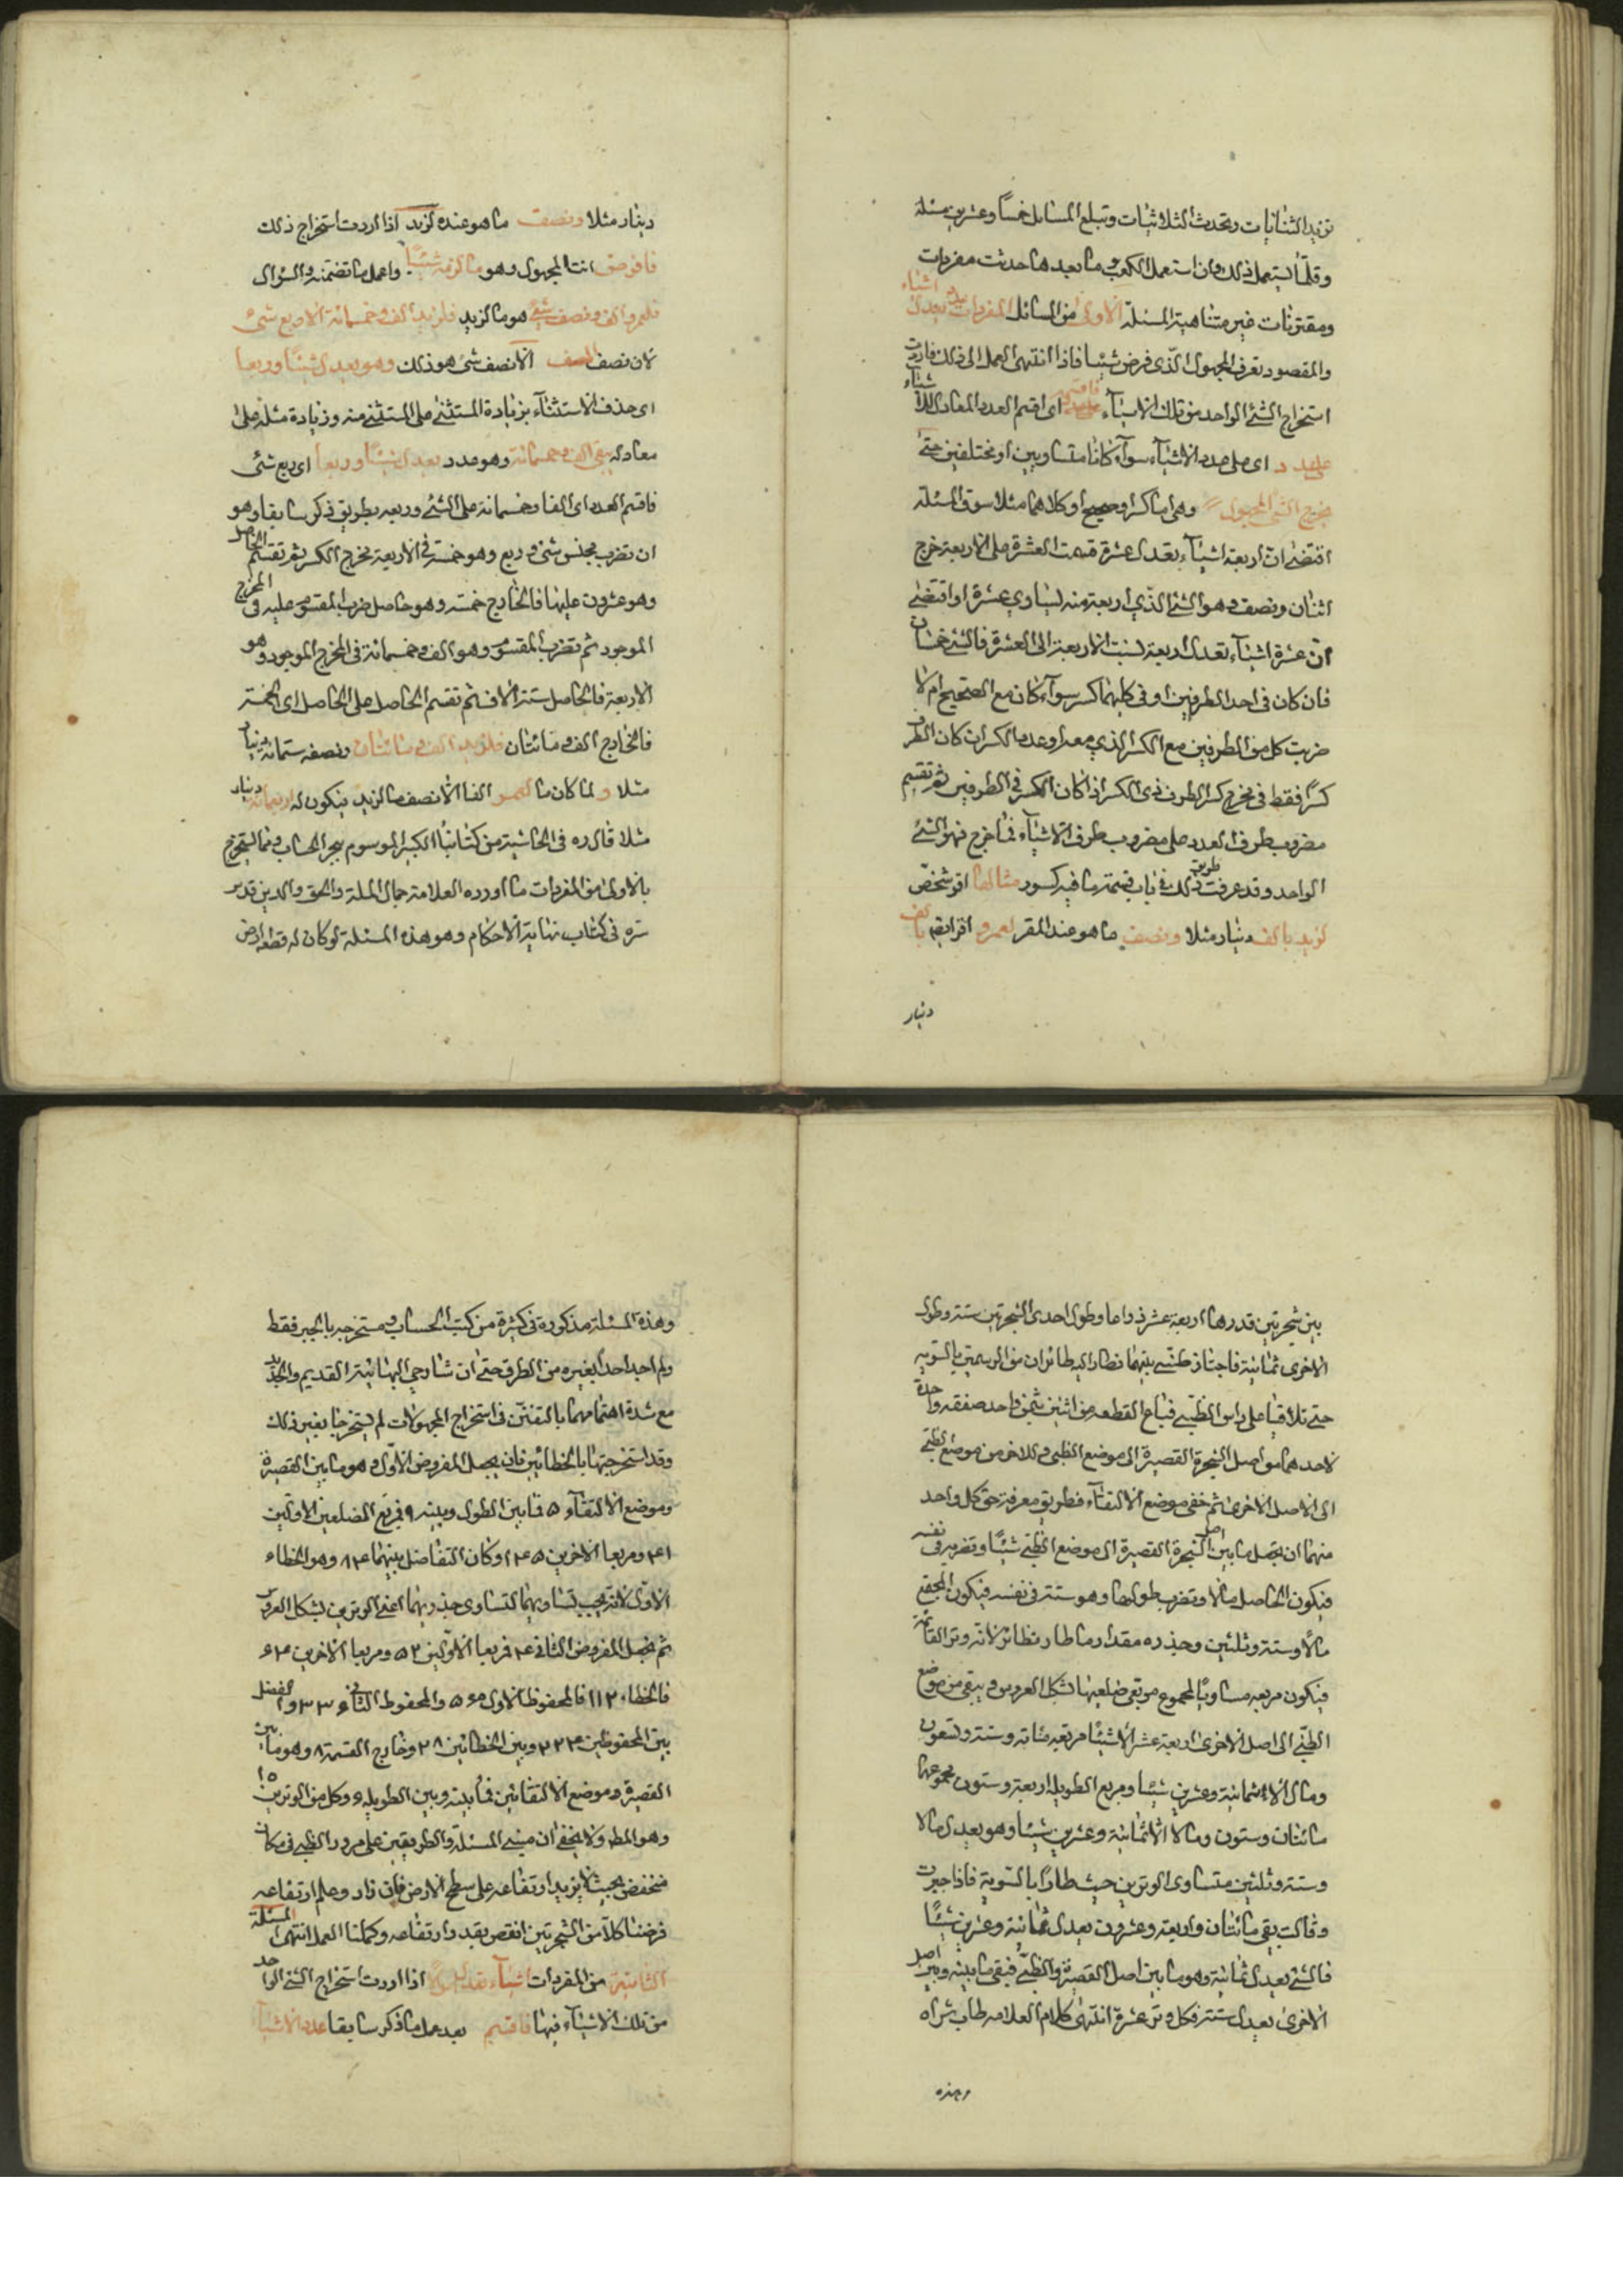 تزيد الثنائيات وتحدث الثلاثيات وتبلغ المسايل خمسا وعشرين مسئلة
وقلما يستعمل ذلك وان استعمل الكعب وما بعدها حدثت مفردات
ومقترنات غير متناهية المسئلة الاولى من المسائل المفردات عدد يعدل اشياء
والمقصود تعرف المجهول الذي فرض شيئا فاذا انتهى العمل الى ذلك فاردت
استخراج الشئ الواحد من تلك الاشياء فاقسمه اى اقسم العدد المعادل للاشياء
على عدد اى على عدد الاشياء سواء كانا متساويين او مختلفين حتى
يخرج الشئ المجهول وهى اما كسر او صحيح او كلاهما مثلا سوق المسئلة
اقتضى ان اربعة اشياء تعدل عشرة قسمت العشرة على الاربعة خرج
اثنان ونصف وهو الشئ الذي اربعة منه يساوي عشرة او اقتضى
ان عشرة اشياء تعدل اربعة نسبت الاربعة الى العشرة فالشئ خمسان
فان كان في احد الطرفين او في كليهما كسر سواء كان مع الصحيح ام لا
ضربت كل من الطرفين مع الكسر الذي معه او عدد الكسر ان كان الطرف
كسرا فقط في مخرج كسر الطرف ذي الكسر اذا كان الكسر في الطرفين ثم تقسم
مضروب طرف العدد على مضروب طرف الاشياء فما خرج فهو الشئ
الواحد وقد عرفت طريق ذلك في باب قسمة ما فيه كسور مثالها اقر شخص
لزيد بالف دينار مثلا ونصف ما هو عند المقر لعمرو اقر ايضا بالف
دينار
دينار مثلا ونصف ما هو عنده لزيد اذا اردت استخراج ذلك
فافرض انت المجهول وهو ما لزيد شيئا واعمل ما تضمنه السؤال
فلعمرو الف ونصف شئ هو ما لزيد فلزيد الف وخمسمائة الا ربع شئ
لان نصف الف الا نصف شئ هو ذلك وهو يعدل شيئا وربعا
اى حذف الاستثناء بزيادة المستثنى على المستثنى منه وزيادة مثله على
معادله بقى الف وخمسمائة وهو عدد يعدل شيئا وربعا اى ربع شئ
فاقسم العدد اى الفا وخمسمائة على الشئ وربعه بطريق ذكر سابقا وهو
ان تضرب مجنس شئ وربع وهو خمسة في الاربعة مخرج الكسر ثم تقسم الحاصل
وهو عشرون عليها فالخارج خمسة وهو حاصل ضرب المقسوم عليه في المخرج
الموجود ثم تضرب المقسوم وهو الف وخمسمائة في المخرج الموجود وهو
الاربعة فالحاصل ستة الاف ثم تقسم الحاصل على الحاصل اى الخمسة
فالخارج الف ومائتان فلزيد الف ومائتان ونصفه ستمائة دينار
مثلا ولما كان ما لعمرو الفا الا نصف ما لزيد يكون له اربعمائة دينار
مثلا قال ره في الحاشية من كتابنا الكبير الموسوم ببحر الحساب ومما يستخرج
بالاولى من المفردات ما اورده العلامة جمال الملة والحق والدين قدس
سره في كتاب نهاية الاحكام وهو هذه المسئلة لو كان له قطعة ارض
بين شجرتين قدرها اربعة عشر ذراعا وطول احدى الشجرتين ستة وطول
الاخرى ثمانية فاجتاز ظبى بينهما فطار اليه طائران من الراسين بالسوية
حتى تلاقيا على راس الظبى فباع القطعة من اثنين بثمن واحد صفقة واحدة
لاحدهما من اصل الشجرة القصيرة الى موضع الظبى وللاخر من موضع الظبى
الى الاصل الاخرى ثم خفى موضع الالتقاء فطريق معرفة حق كل واحد
منهما ان تجعل ما بين اصل الشجرة القصيرة الى موضع الظبى شيئا وتضربه في نفسه
فيكون الحاصل مالا وتضرب طولها وهو ستة في نفسه فيكون المجتمع
مالا وستة وثلثين وجذره مقدار ما طار نظائر لانه وتر القائمة
فيكون مربعه مساويا لمجموع مربعى ضلعيها بشكل العروس ويبقى من موضع
الظبى الى اصل الاخرى اربعة عشر الا شيئا مربعه مائة وستة وتسعون
ومال الا ثمانية وعشرين شيئا ومربع الطويلة اربعة وستون مجموعهما
مائتان وستون ومالا الا ثمانية وعشرين شيئا وهو يعدل مالا
وستة وثلثين متساوى الوترين حيث طارا بالسوية فاذا جبرت
وقابلت بقى مائتان واربعة وعشرون يعدل ثمانية وعشرين شيئا
فالشئ يعدل ثمانية وهو ما بين اصل القصيرة والظبى فبقى ما بينه وبين اصل
الاخرى يعدل ستة فكل وتر عشرة انتهى كلام العلامة طاب ثراه
وهذه
وهذه المسئلة مذكورة في كثيرة من كتب الحساب ومستخرجه بالجبر فقط
ولم اجد احدا بغيره من الطرق حتى ان شارحي البهائية القديم والجديد
مع شدة اهتمامهما بالتفنن في استخراج المجهولات لم يستخرجا بغير ذلك
وقد استخرجتها بالخطائين فان يجعل المفروض الاول وهو ما بين القصيرة
وموضع الالتقاء ٥ فما بين الطول وبينه ٩ فمربع الضلعين الاولين
٦١ ومربعا الاخرين ١٤٥ وكان التفاضل بينهما ٨٤ وهو الخطاء
الاول لانه يجب تساويهما لتساوى جذريهما اعنى الوترين بشكل العروس
ثم نجعل المفروض الثاني ٤ فمربعا الاولين ٥٢ ومربعا الاخرين ١٦٤
فالخطا ١١٢ فالمحفوظ الاول ٥٦٠ والمحفوظ الثاني ٣٣٦ والفضل
بين المحفوظين ٢٢٤ وبين الخطائين ٢٨ وخارج القسمة ٨ وهو ما بين
القصيرة وموضع الالتقائين فما بينه وبين الطويلة ٦ وكل من الوترين ١٠
وهو المط ولا يخفى ان مبنى المسئلة والطريقين على مرور الظبى في مكان
منخفض بحيث لا يزيد ارتفاعه على سطح الارض فان زاد وعلم ارتفاعه
فرضنا كلا من الشجرتين انقص بقدر ارتفاعه وكملنا العمل انتهى المسئلة
الثانية من المفردات اشياء تعدل اموالا اذا اردت استخراج الشئ الواحد
من تلك الاشياء فيها فاقسم بعد عمل ما ذكر سابقا عدد الاشياء